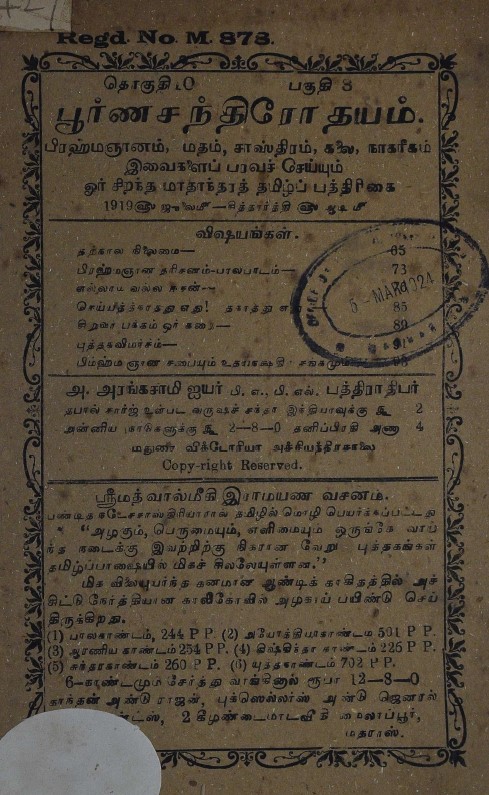 Regd. No. M. 878.
தொகுதி 10 பகுதி 8
பூர்ணசந்திரோதயம்.
பிரஹ்மஞானம், மதம், சாஸ்திரம், கலை, நாகரீகம்
இவைகளைப் பரவச் செய்யும்
ஓர் சிறந்த மாதாந்தரத் தமிழ்ப் பத்திரிகை
1919௵ ஜுலை௴—சித்தார்த்தி ௵ ஆடி ௴
விஷயங்கள்.
தற்கால நிலைமை— 65
பிரஹ்மஞான தரிசனம்-பாலபாடம்— 73
எல்லாம் வல்ல
செய்யத்தக்கது எது! தகாதது 85
சிறுவர் பக்கம் ஓர் கதை— 89
புத்தகவிமர்சம்—
பிரம்மஞான சபையும்
5 - MAR 1924
அ. அரங்கசாமி ஐயர் பி. ஏ., பி. எல். பத்திராதிபர்
தபால் சார்ஜ் உள்பட வருஷச் சந்தா இந்தியாவுக்கு ரூ 2
அன்னிய நாடுகளுக்கு ரூ 2—8—0 தனிப்பிரதி அணா 4
மதுரை விக்டோரியா அச்சியந்திரசாலை
Copy-right Reserved.
ஸ்ரீமத்வால்மீகி இராமயண வசனம்.
பண்டித நடேசசாஸ்திரியாரால் தமிழில் மொழி பெயர்க்கப்பட்டது
"அழகும், பெருமையும், எளிமையும் ஒருங்கே வாய்
ந்த நடைக்கு இவற்றிற்கு நிகரான வேறு புத்தகங்கள்
தமிழ்ப்பாஷையில் மிகச் சிலவேயுள்ளன."
மிக விலையுயர்ந்த கனமான ஆண்டிக் காகிதத்தில் அச்
சிட்டு நேர்த்தியான காலிகோவில் அழகாய் பயிண்டு செய்
திருக்கிறது.
(1) பாலகாண்டம், 244 P P. (2) அயோத்தியாகாண்டம் 501 P P.
(3) ஆரணிய காண்டம் 254 P P. (4) கிஷ்கிந்தா காண்டம் 226 P P.
(5) சுந்தரகாண்டம் 260 P P. (6) யுத்தகாண்டம் 702 P P.
6—காண்டமும் சேர்த்து வாங்கினால் ரூபா 12—8—0
காந்தன் அண்டு ராஜன், புக்ஸெல்லர்ஸ் அண்டு ஜெனரல்
2 கீழண்டைமாடவீதி மைலாப்பூர்,
மதராஸ்.